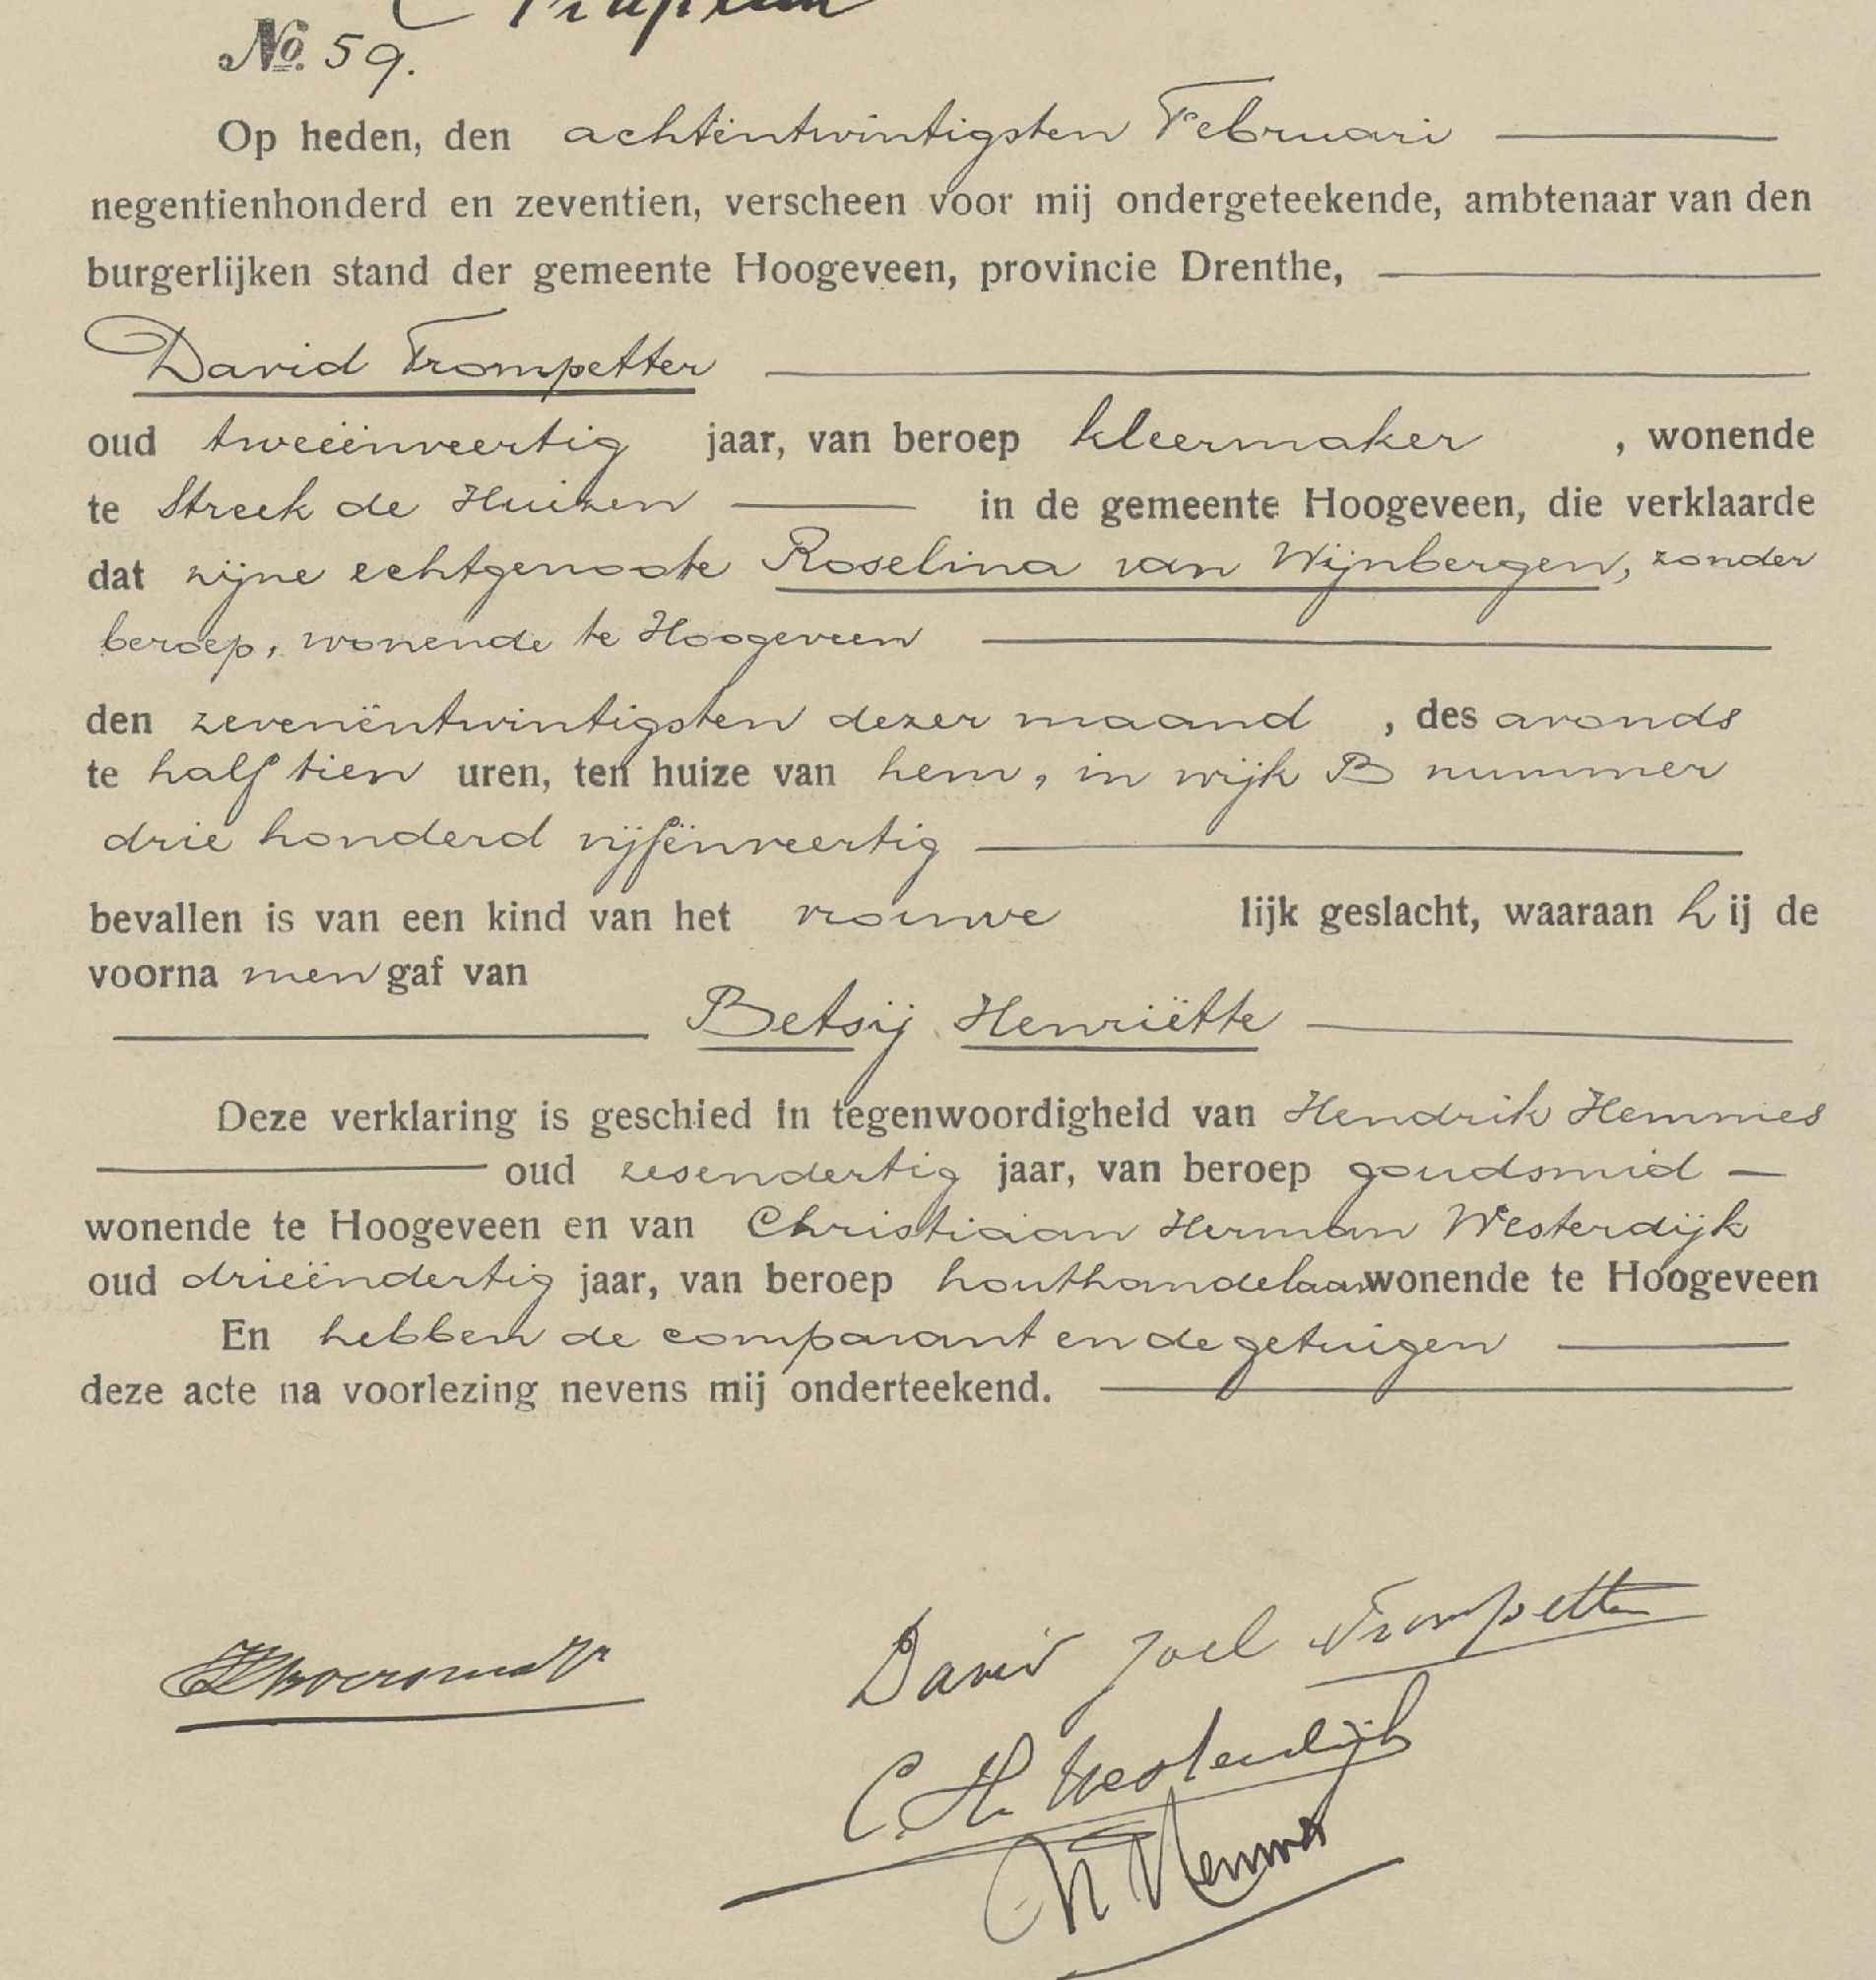 No. 59.
Op heden, den achtëntwintigsten Februari
negentienhonderd en zeventien, verscheen voor mij ondergeteekende, ambtenaar van den
burgerlijken stand der gemeente Hoogeveen, provincie Drenthe,
David Trompetter
oud tweeënveertig jaar, van beroep kleermaker , wonende
te Streek de Huizen in de gemeente Hoogeveen, die verklaarde
dat zijne echtgenoote Roselina van Wijnbergen, zonder
beroep, wonende te Hoogeveen
den zevenëntwintigsten dezer maand , des avonds
te half tien uren, ten huize van hem, in wijk B nummer
drie honderd vijfënveertig
bevallen is van een kind van het vrouwe lijk geslacht, waaraan hij de
voornamen gaf van
Betsij Henriëtte
Deze verklaring is geschied in tegenwoordigheid van Hendrik Hemmes
oud zesendertig jaar, van beroep goudsmid
wonende te Hoogeveen en van Christiaan Herman Westerdijk
oud drieëndertig jaar, van beroep houthandelaar wonende te Hoogeveen
En hebben de comparant en de getuigen
deze acte na voorlezing nevens mij onderteekend.
David Joel Trompetter
C. H. Westerdijk
H Hemmes